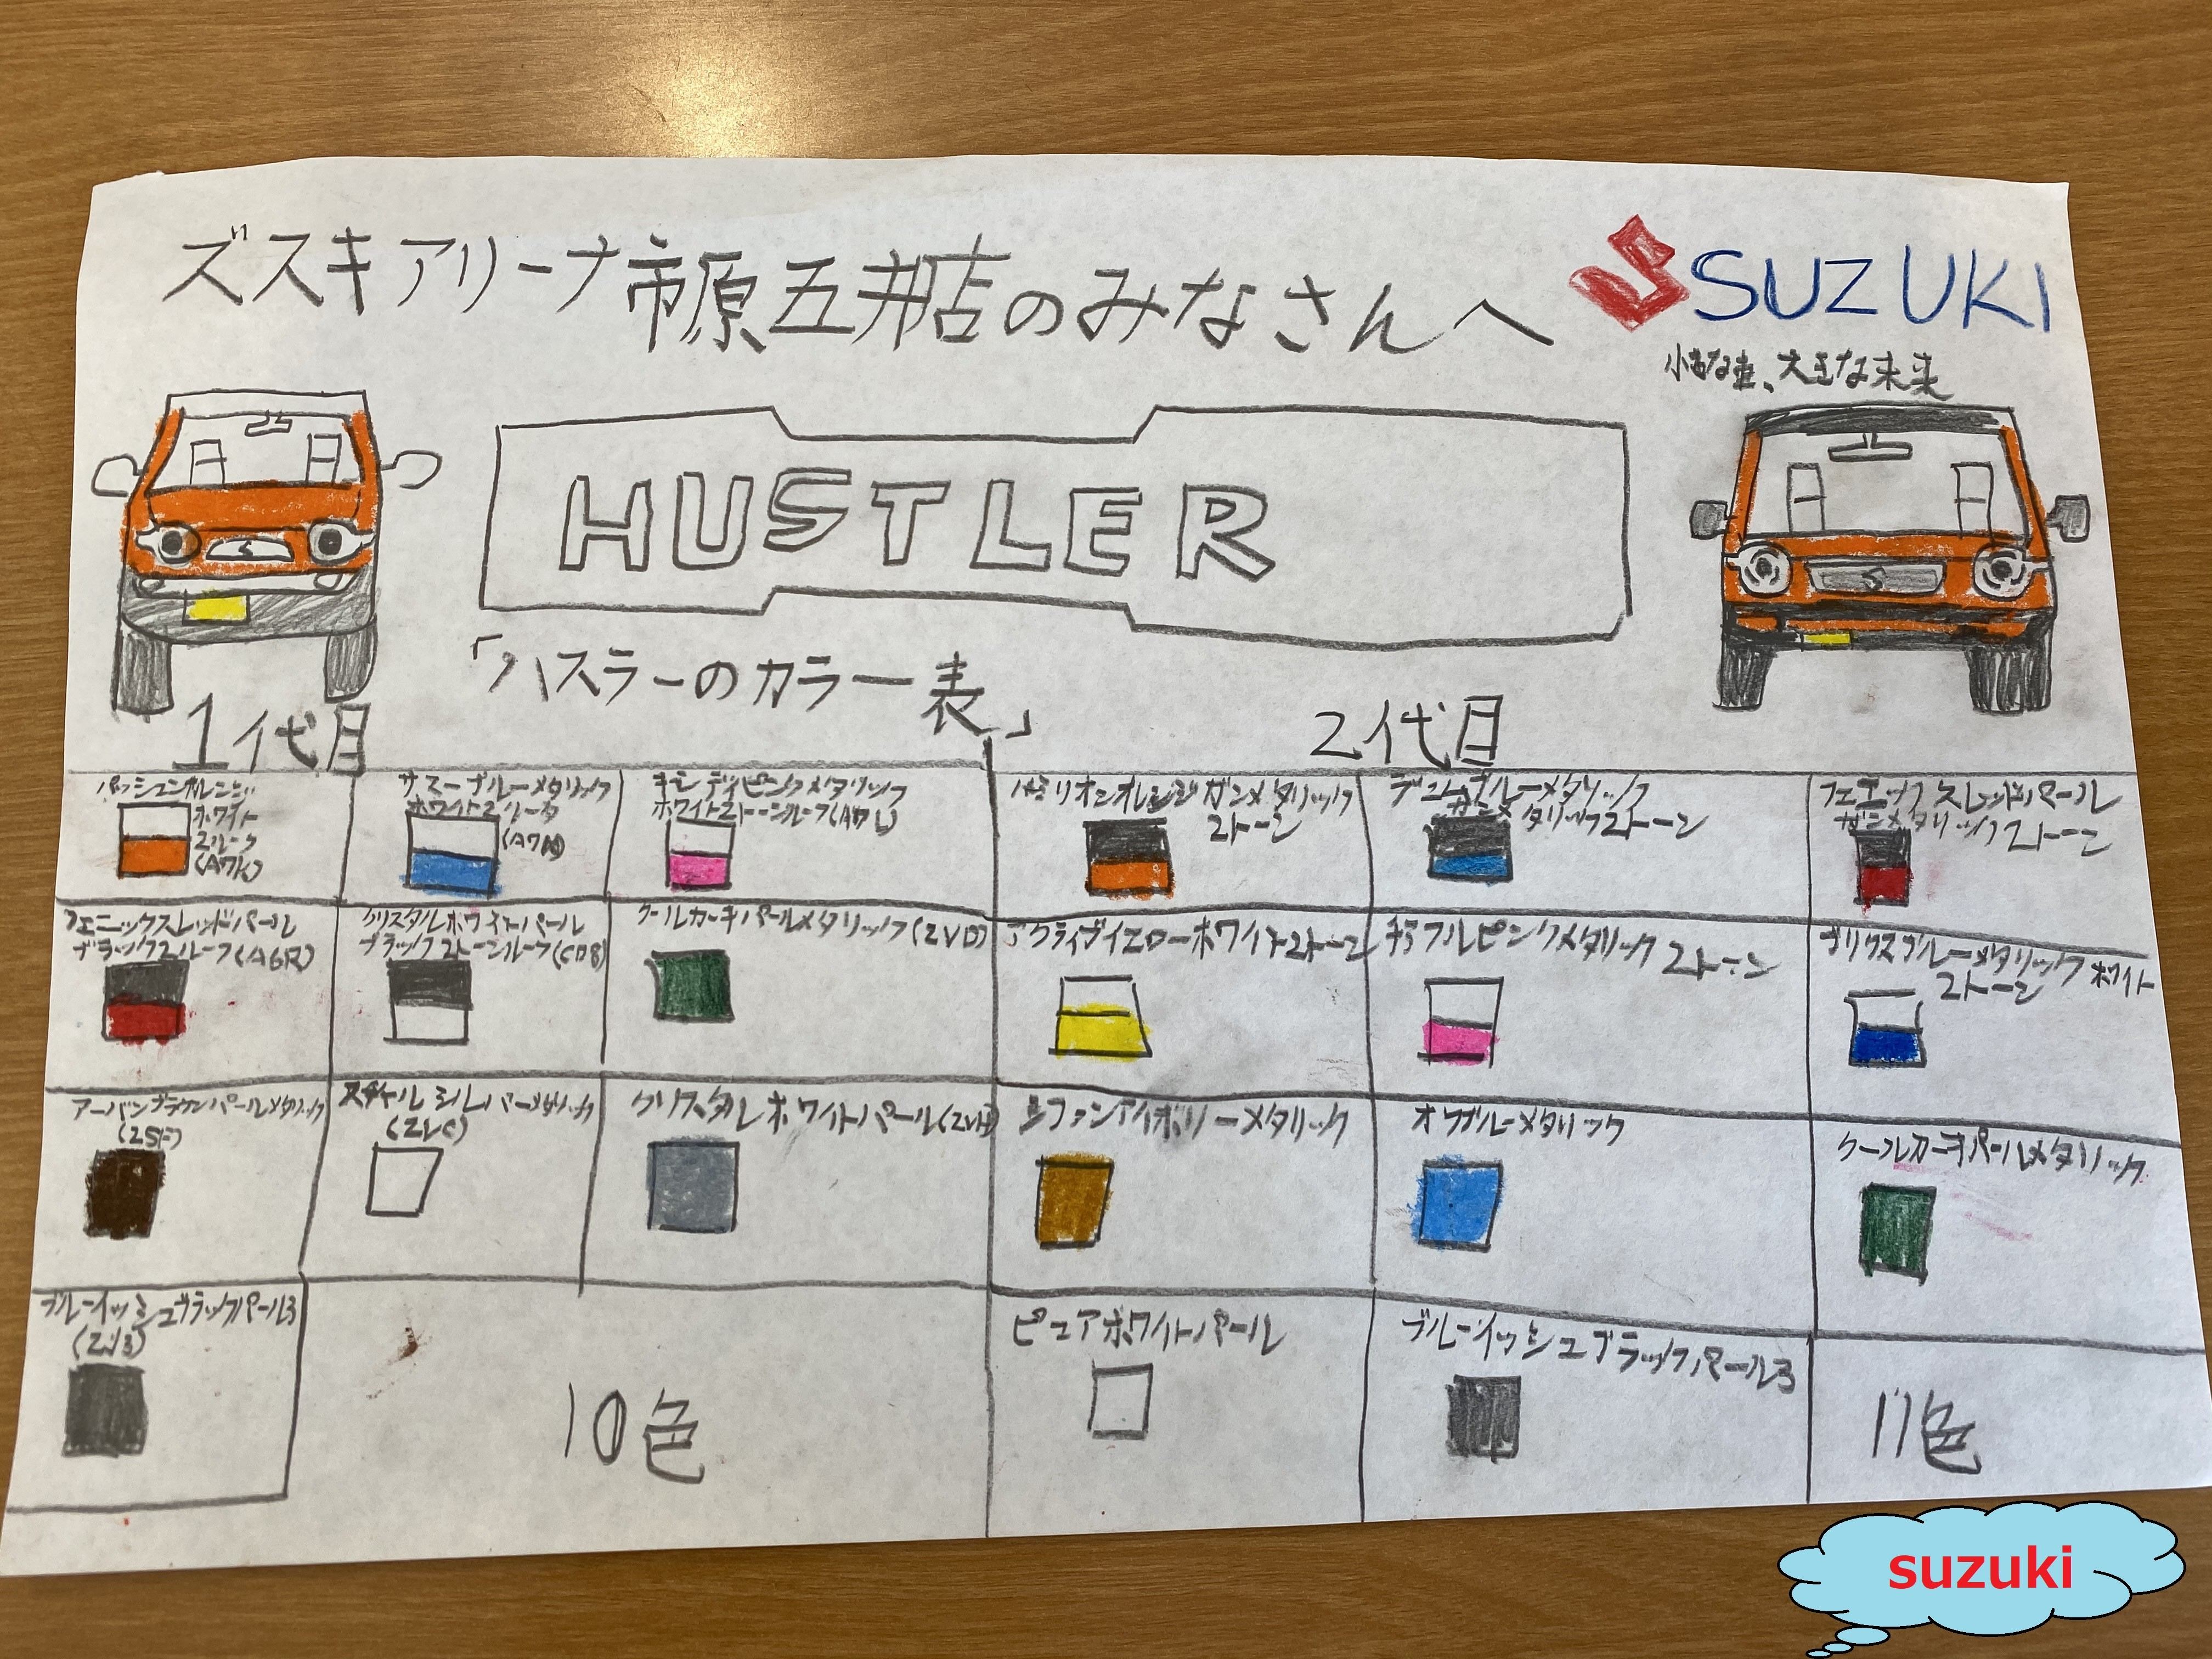 ズスキアリーナ市原五井店のみなさんへ
SUZUKI
小さな車、大きな未来
HUSTLER
「ハスラーのカラー表」
1代目
2代目
パッションオレンジ
ホワイト
2ルーフ
(A7K)
サマーブルーメタリック
ホワイト2ルーフ
(A7N)
キャンディピンクメタリック
ホワイト2トーンルーフ(A7L)
バーミリオンオレンジガンメタリック
2トーン
デニムブルーメタリック
ガンメタリック2トーン
フェニックスレッドパール
ガンメタリック2トーン
フェニックスレッドパール
ブラック2ルーフ(A6R)
クリスタルホワイトパール
ブラック2トーンルーフ(CD8)
クールカーキパールメタリック(ZVD)
アクティブイエローホワイト2トーン
チアフルピンクメタリック2トーン
ブリスクブルーメタリックホワイト
2トーン
アーバンブラウンパールメタリック
(ZSF)
スチールシルバーメタリック
(ZVC)
クリスタルホワイトパール(ZVH)
シフォンアイボリーメタリック
オフブルーメタリック
クールカーキパールメタリック
ブルーイッシュブラックパール3
(ZJ3)
10色
ピュアホワイトパール
ブルーイッシュブラックパール3
11色
suzuki